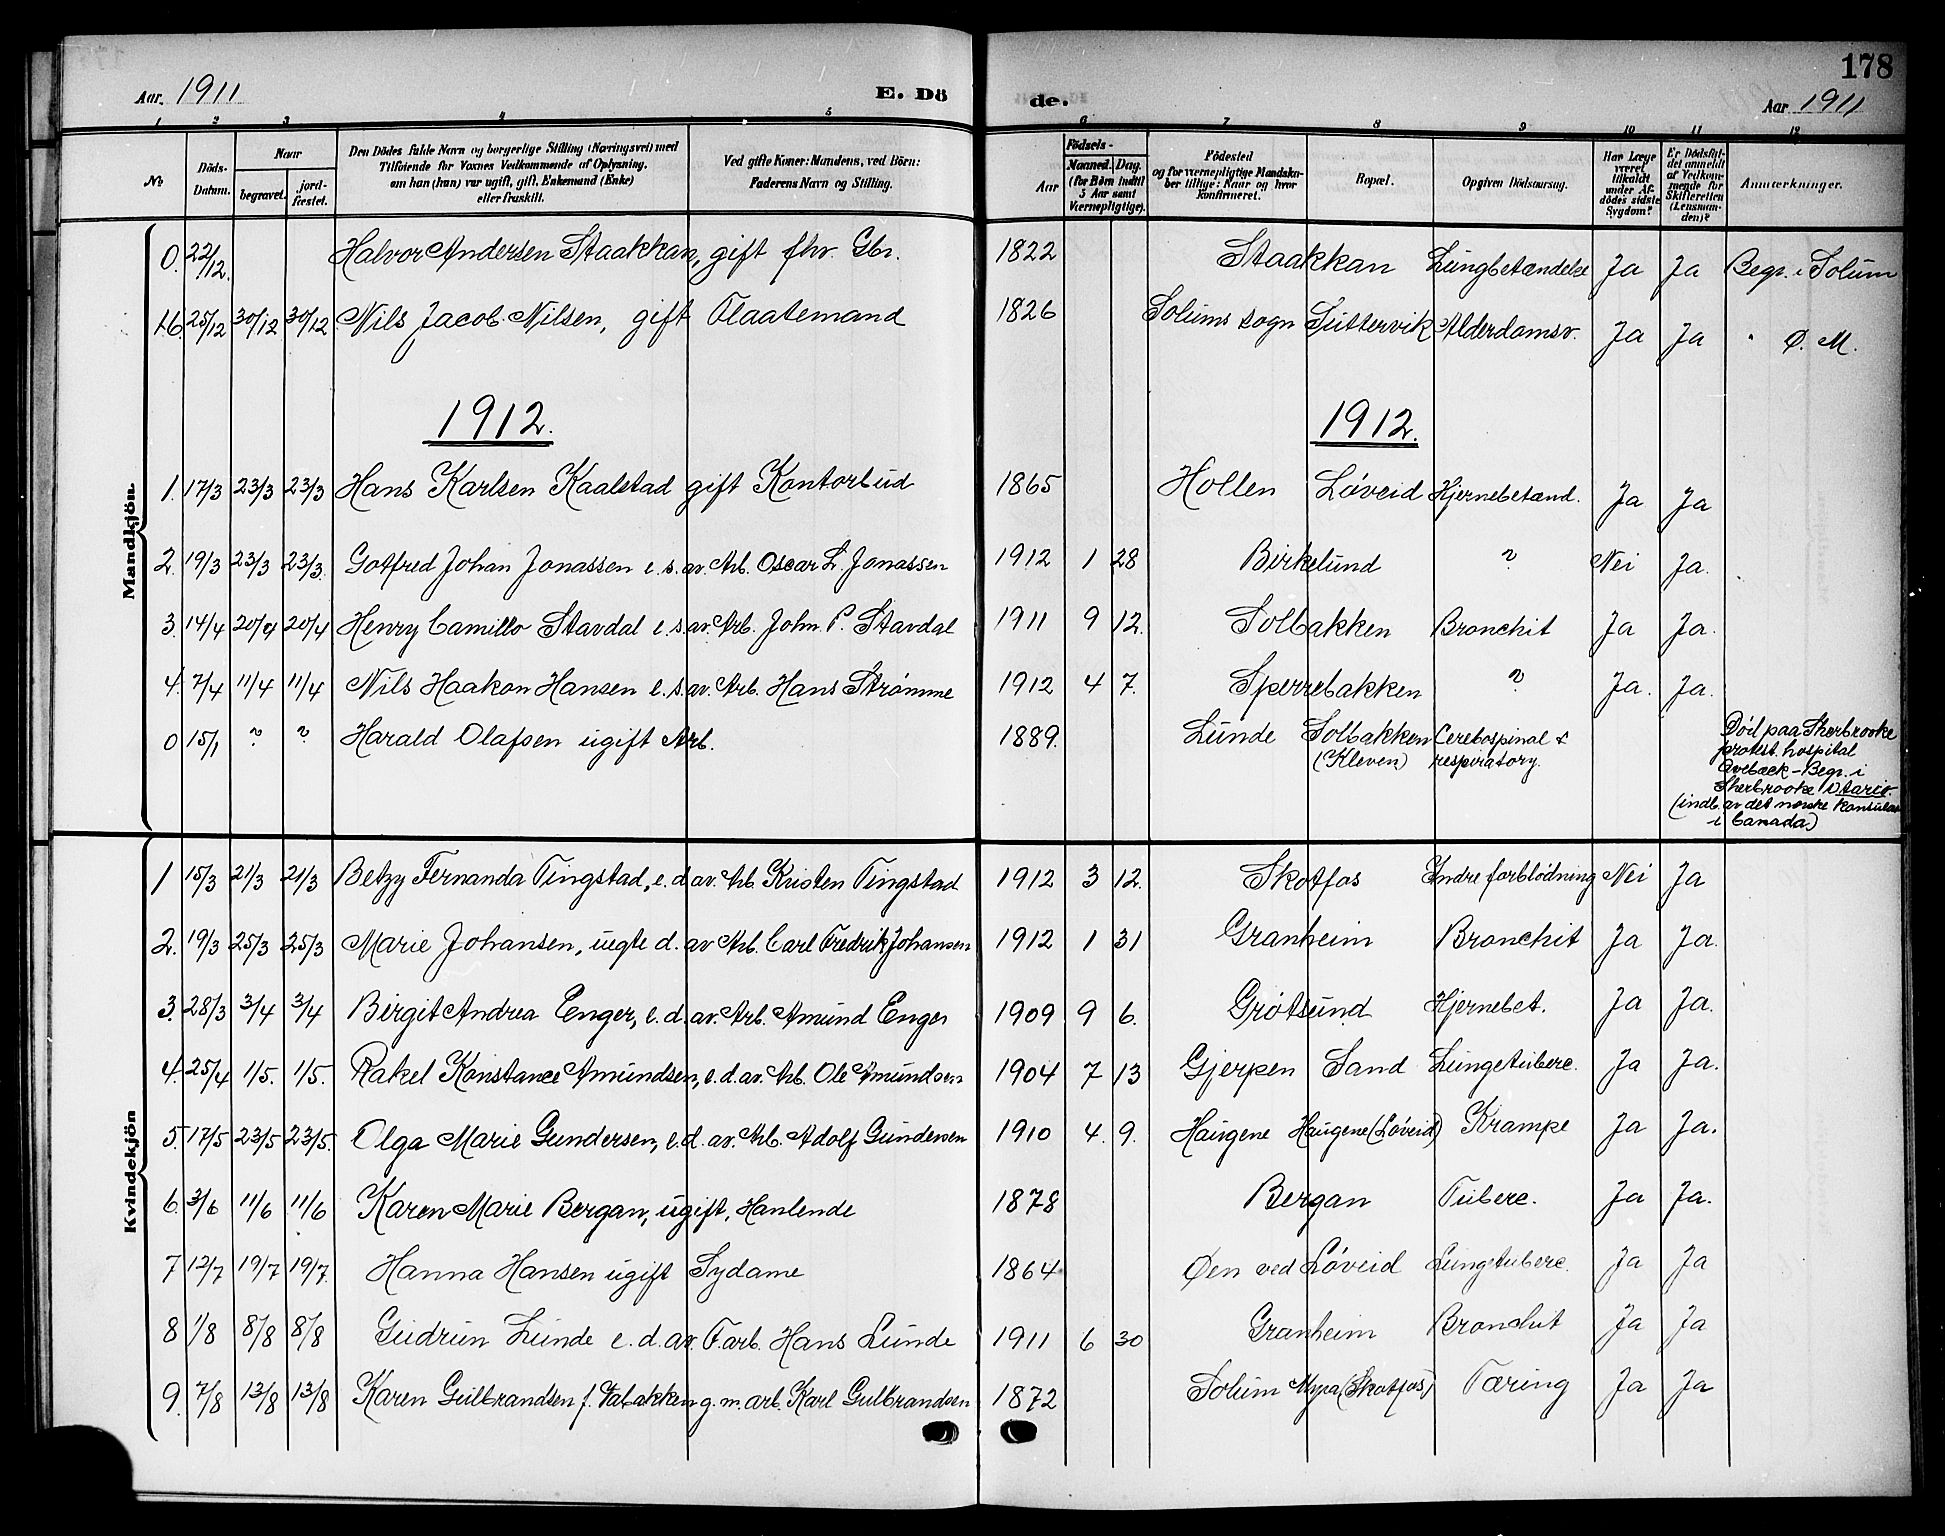 178
Aar. 1911 E. Dö de. Aar 1911
1 2 3 4 5 6 7 8 9 10 11 12
№ Döds-Datum. Naar begravet. jordfæstet. Den Dödes fulde Navn og borgerlige Stilling (Næringsvei) med Tilföiende for Voxnes Vedkommende af Oplysning, om han (hun) var ugift, gift, Enkemand (Enke) eller fraskilt. Ved gifte Koner: Mandens, ved Börn: Faderens Navn og Stilling. Födsels- Aar Maaned. Dag. (for Börn indtil 5 Aar samt Værnepligtige). Födested og for værnepligtige Mandskaber tillige: Naar og hvor konfirmeret. Bopæl. Opgiven Dödsaarsag. Har Læge været tilkaldt under Afdödes sidste Sygdom? Er Dödsfaldet anmeldt af Vedkommende for Skifteretten (Lensmanden)? Anmærkninger.
Mandkjön.
0. 22/12. Halvor Andersen Staakkan, gift fhv. Gbr. 1822 Staakkan Lungbetændelse Ja Ja Begr. i Solum
16. 25/12 30/12 30/12 Nils Jacob Nilsen, gift Flaatemand 1826 Solums sogn Suttervik Alderdomsv. Ja Ja " Ø. M.
1912. 1912.
1. 17/3 23/3 23/3 Hans Karlsen Kaalstad gift Kontorbud 1865 Hollen Løveid Hjernebetænd. Ja Ja
2. 19/3 23/3 23/3. Gotfred Johan Jonassen e. s. av. Arb. Oscar L. Jonassen 1912 1 28 Birkelund ? Nei Ja.
3. 14/4 20/4 20/4 Henry Camillo Stavdal e. s. av. Arb. John. P. Stavdal 1911 9 12. Solbakken Bronchit Ja Ja.
4. 7/4 11/4 11/4 Nils Haakon Hansen e. s. av. Arb. Hans Strømme 1912 4 7. Sperrebakken ? Ja. Ja.
0 15/1 ? ? Harald Olafsen ugift Arb. 1889. Lunde Solbakken (Kleven) Cerebospinal & respiratory. Död paa Sherbrooke
protest. hospital
Qvebæck – Begr. i
Sherbrooke Otario.
(indb. av det norske konsulat
i Canada)
Kvindekjön
1 15/3 21/3 21/3 Betzy Fernanda Tingstad, e. d. av. Arb. Kristen Tingstad 1912 3 12. Skotfos Indre forblödning Nei Ja
2. 19/3 25/3 25/3 Marie Johansen, uegte d. av Arb. Carl Fredrik Johansen 1912 1 31 Granheim Bronchit Ja Ja.
3. 28/3 3/4 3/4 Birgit Andrea Enger, e. d. av. Arb. Amund Enger 1909 9 6. Grøtsund Hjernebet. Ja Ja.
4. 25/4 1/5. 1/5. Rakel Konstance Amundsen, e. d. av. Arb. Ole Amundsen 1904 7 13 Gjerpen Sand Lungetuberc. Ja Ja.
5. 17/5 23/5 23/5. Olga Marie Gundersen, e. d. av. Arb. Adolf Gundersen 1910 4. 9. Haugene Haugene (Løveid) Krampe Ja Ja.
6. 3/6 11/6 11/6 Karen Marie Bergan, ugift, Hanlende 1878 Bergan Tuberc. Ja Ja.
7 12/7 19/7 19/7. Hanna Hansen ugift Sydame 1864 Øen ved Løveid Lungetuberc. Ja Ja
8 1/8 8/8 8/8 Gudrun Lunde e. d. av. F.arb. Hans Lunde 1911 6 30 Granheim Bronchit Ja Ja
9. 7/8 13/8 13/8 Karen Gulbrandsen f. Vabakken g. m. arb. Karl Gulbrandsen 1872 Solum Myra (Skotfos) Tæring Ja Ja